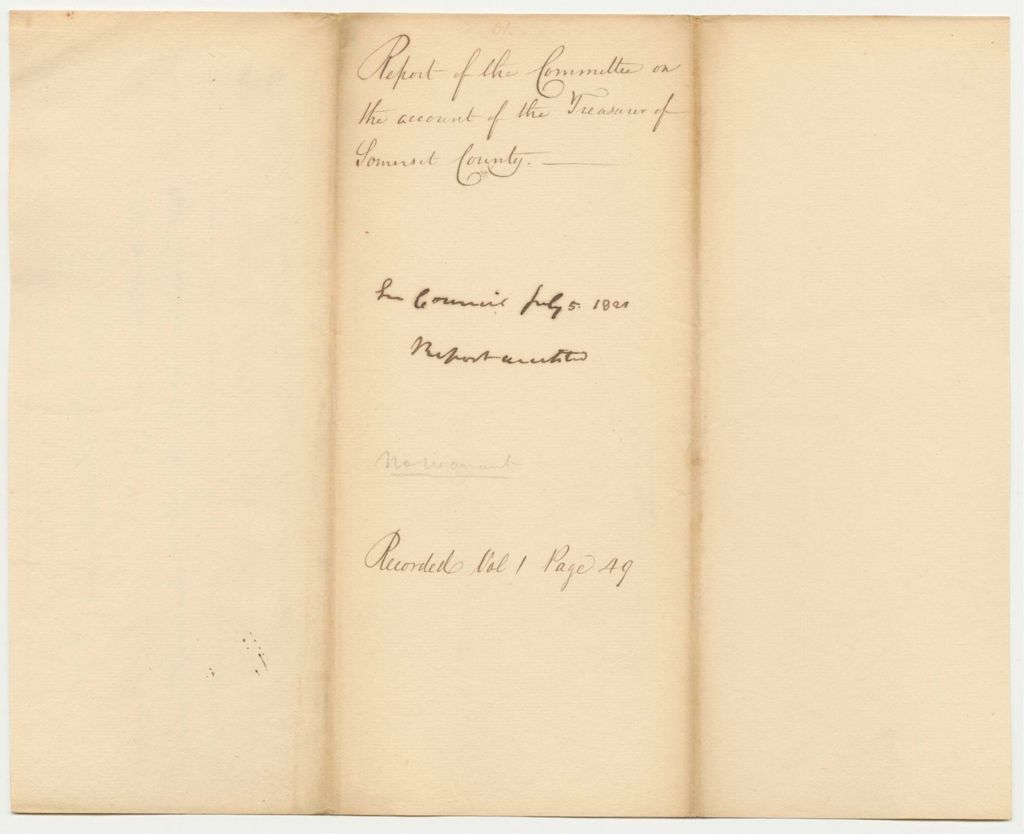 61.
Report of the Committee on
the account of the Treasurer of
Somerset County.
In Council July 5. 1821
Report accepted
No Warrant
Recorded Vol 1 Page 49